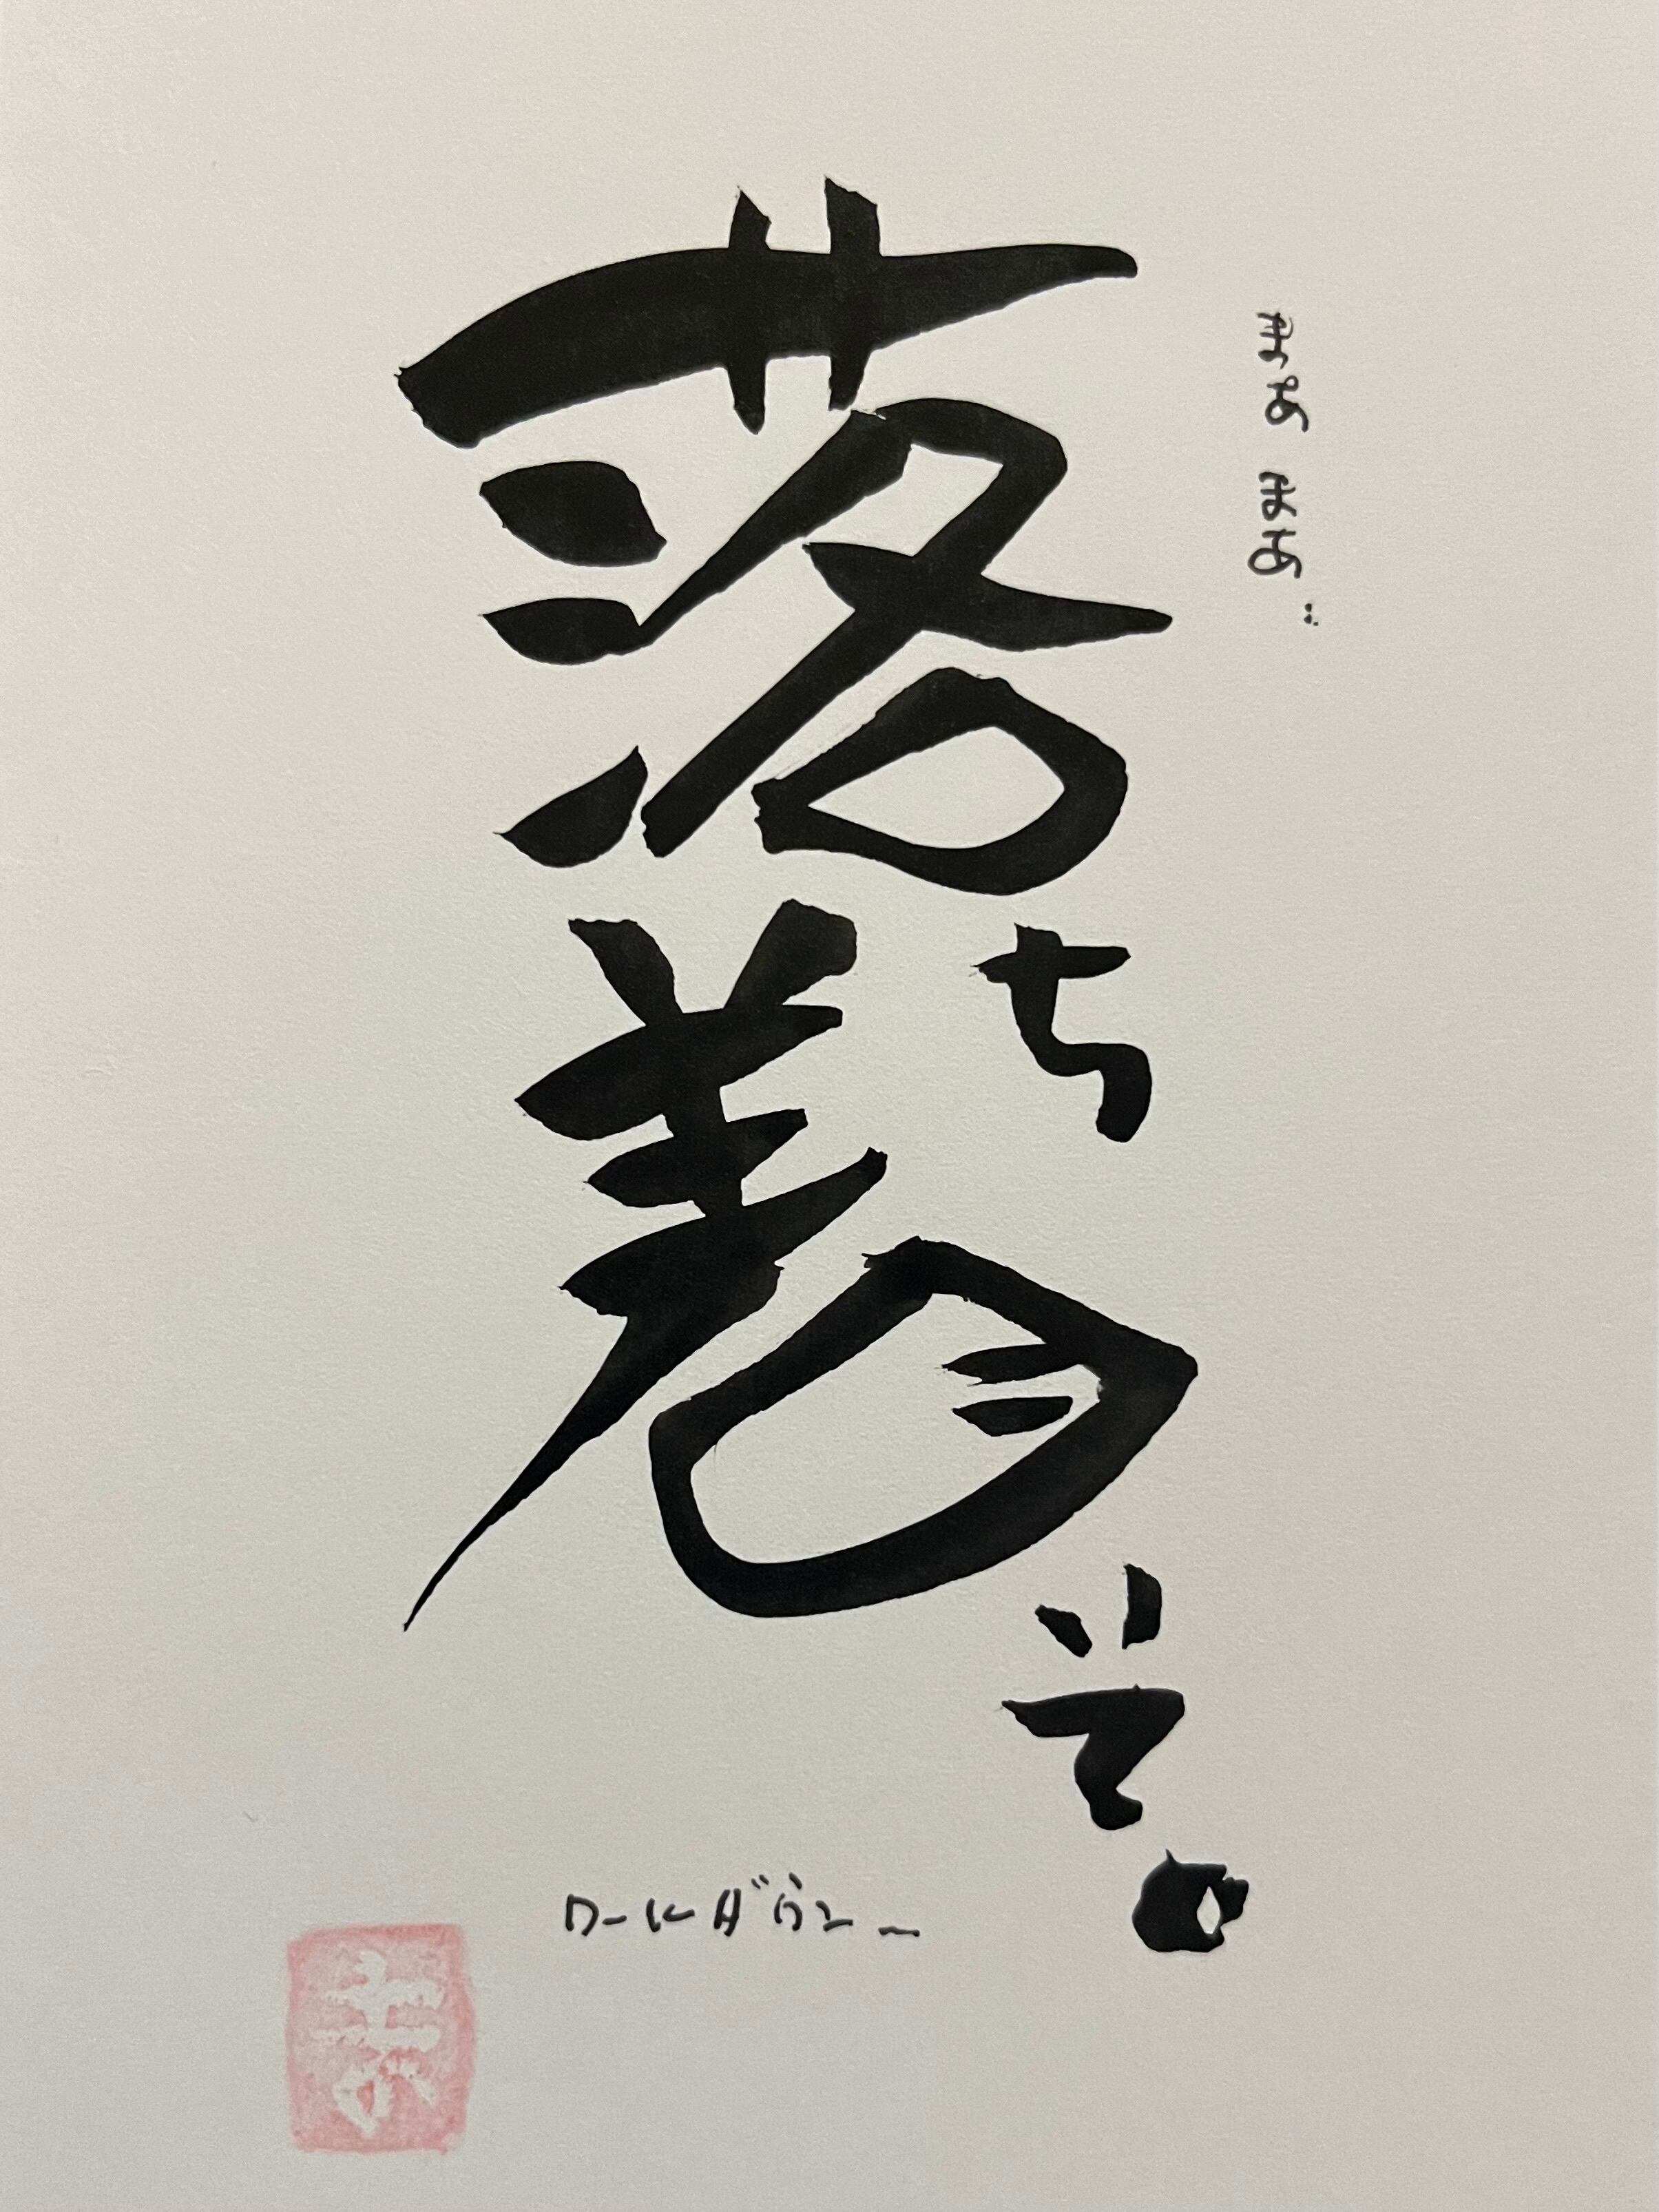 まあ まあ‥
落ち着いて。
クールダウン_